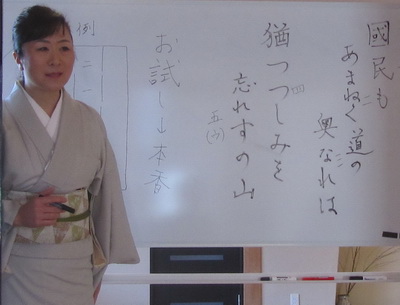 國民も
あまねく道の
奥なれは
猶つつしみを
忘れすの山
五(う)
お試し山 本香
例
二
一